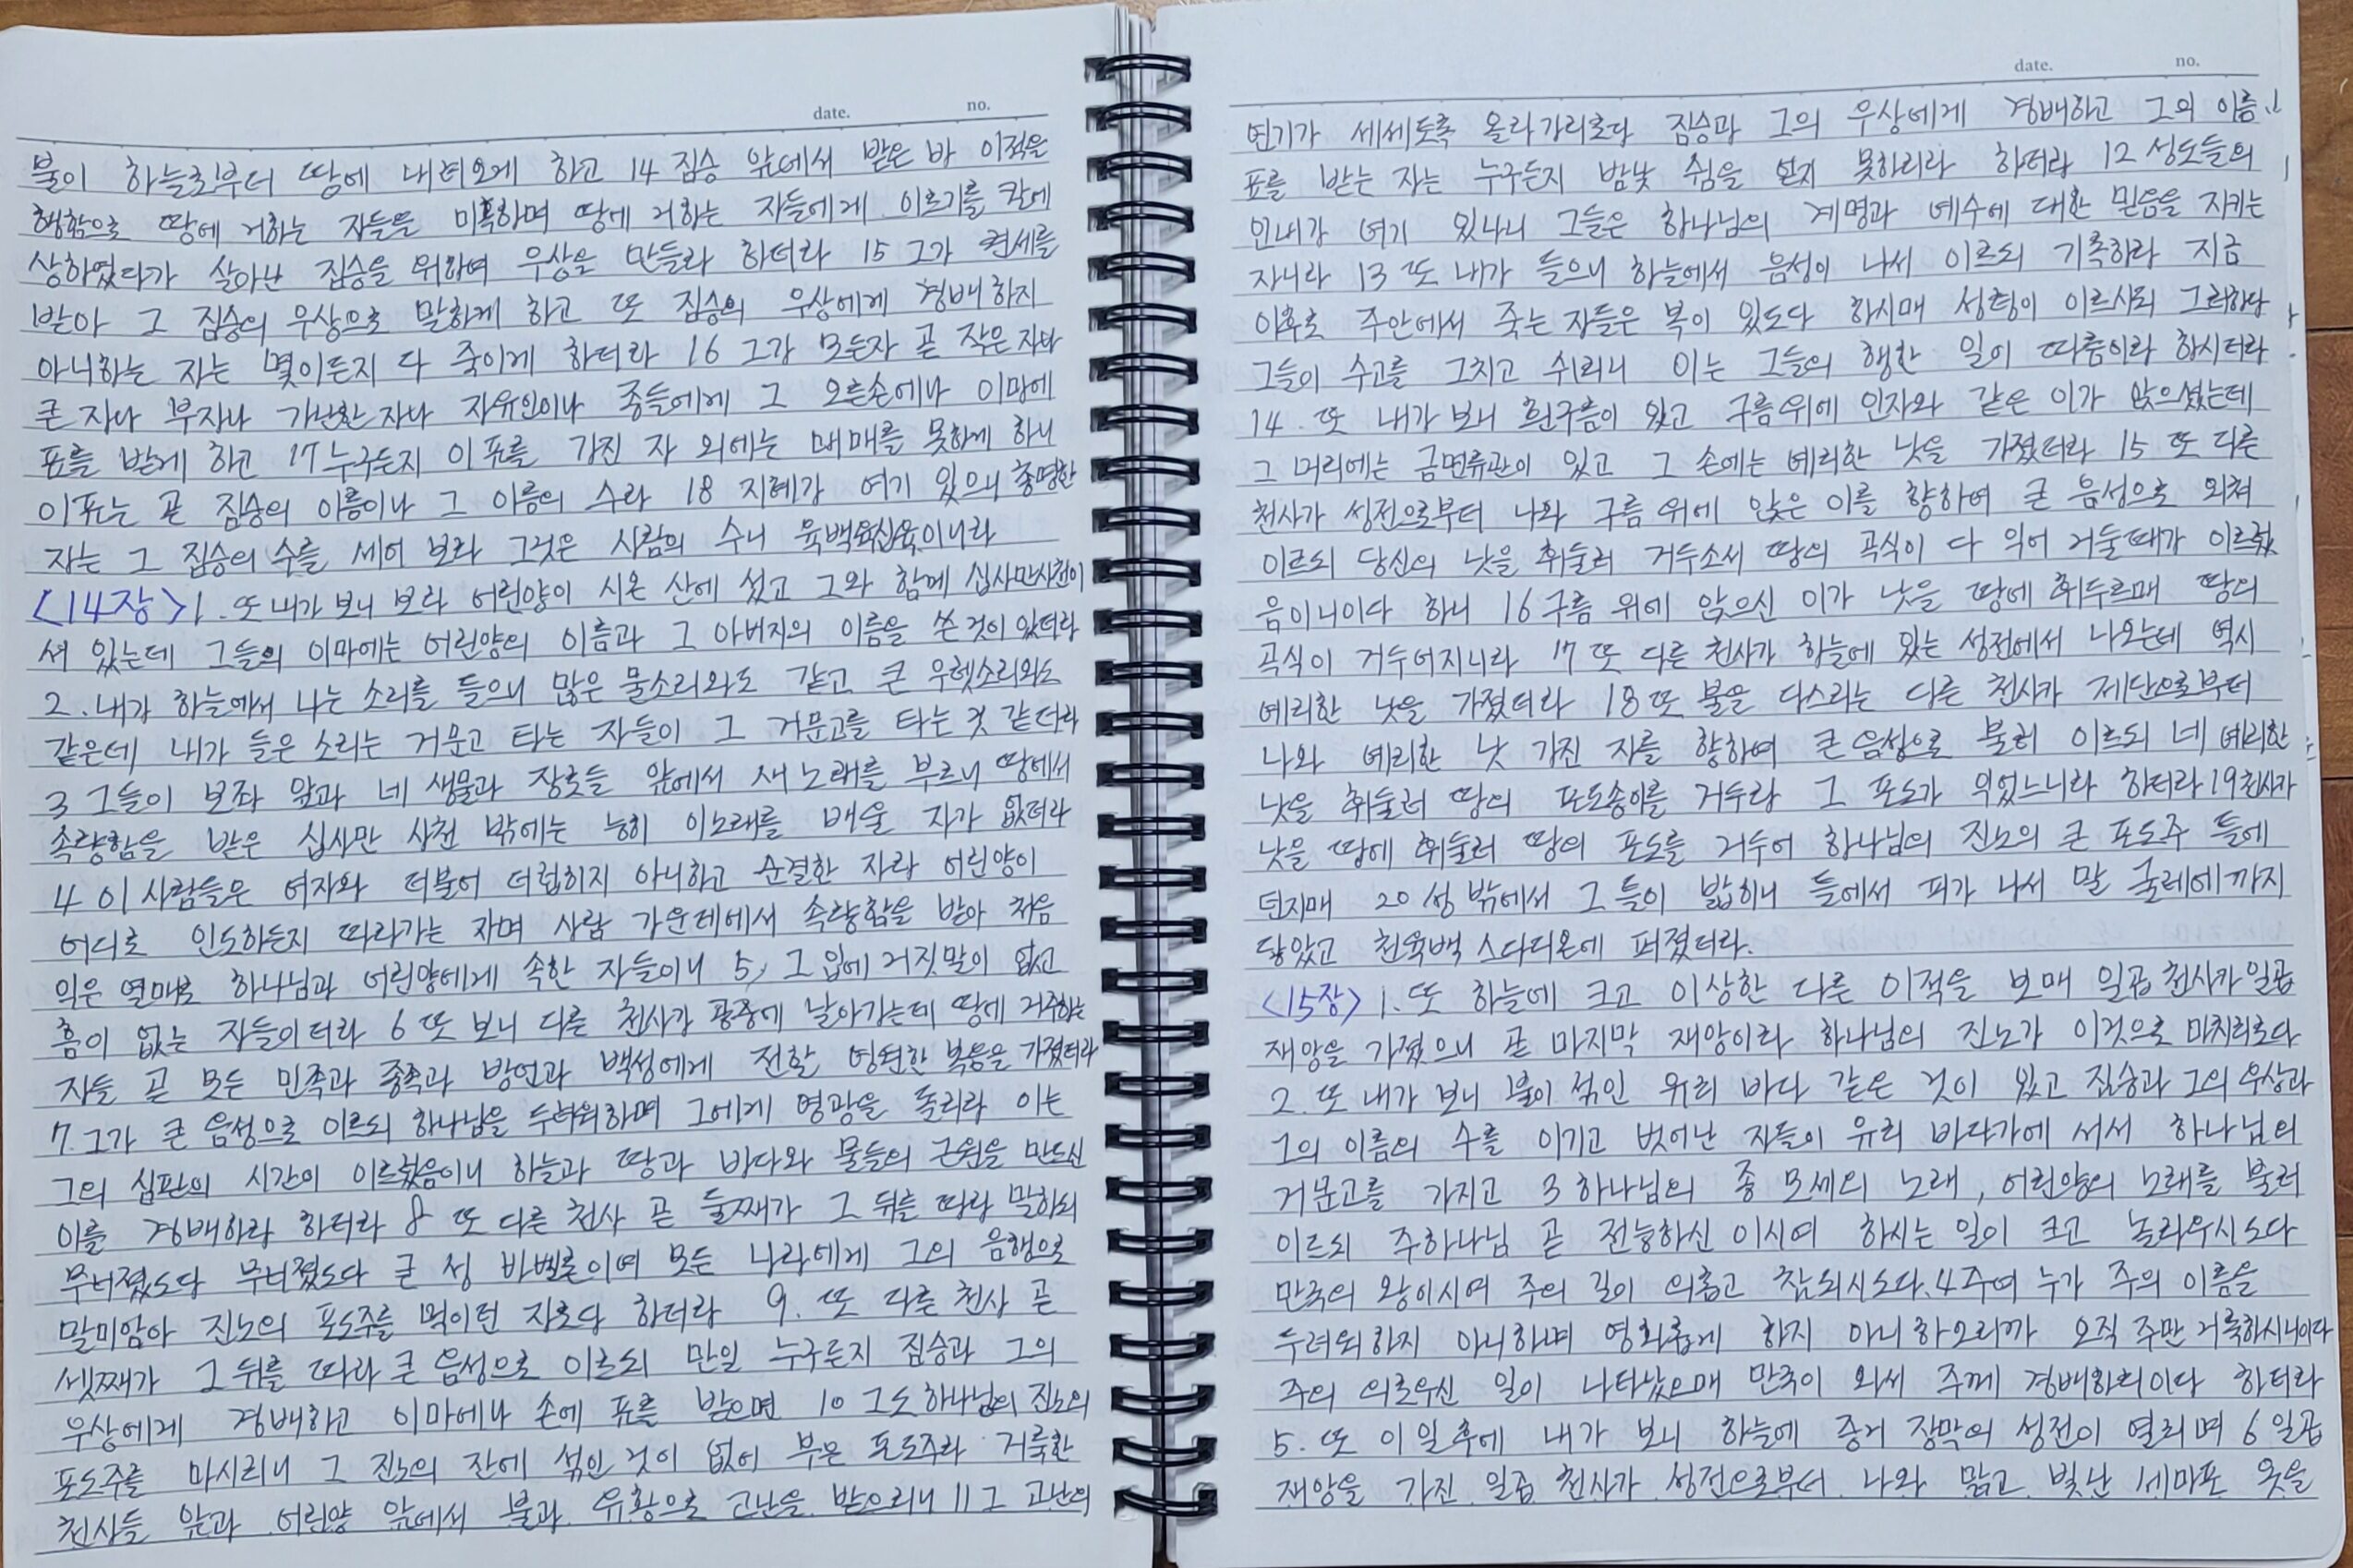 date. no.
불이 하늘로부터 땅에 내려오게 하고 14 짐승 앞에서 받은 바 이적을
행함으로 땅에 거하는 자들을 미혹하며 땅에 거하는 자들에게 이르기를 칼에
상하였다가 살아난 짐승을 위하여 우상을 만들라 하더라 15 그가 권세를
받아 그 짐승의 우상으로 말하게 하고 또 짐승의 우상에게 경배하지
아니하는 자는 몇이든지 다 죽이게 하더라 16 그가 모든자 곧 작은 자나
큰 자나 부자나 가난한 자나 자유인이나 종들에게 그 오른손에나 이마에
표를 받게 하고 17 누구든지 이 표를 가진 자 외에는 매매를 못하게 하니
이표는 곧 짐승의 이름이나 그 이름의 수라 18 지혜가 여기 있으니 총명한
자는 그 짐승의 수를 세어 보라 그것은 사람의 수니 육백육십육이니라
<14장> 1. 또 내가 보니 보라 어린양이 시온 산에 섰고 그와 함께 십사만사천이
서 있는데 그들의 이마에는 어린양의 이름과 그 아버지의 이름을 쓴 것이 있더라
2. 내가 하늘에서 나는 소리를 들으니 많은 물소리와도 같고 큰 우렛소리와도
같은데 내가 들은 소리는 거문고 타는 자들이 그 거문고를 타는 것 같더라
3 그들이 보좌 앞과 네 생물과 장로들 앞에서 새 노래를 부르니 땅에서
속량함을 받은 십사만 사천 밖에는 능히 이노래를 배울 자가 없더라
4 이 사람들은 여자와 더불어 더럽히지 아니하고 순결한 자라 어린양이
어디로 인도하든지 따라가는 자며 사람 가운데에서 속량함을 받아 처음
익은 열매로 하나님과 어린양에게 속한 자들이니 5, 그 입에 거짓말이 없고
흠이 없는 자들이더라 6 또 보니 다른 천사가 공중에 날아가는데 땅에 거주하는
자들 곧 모든 민족과 종족과 방언과 백성에게 전할 영원한 복음을 가졌더라
7. 그가 큰 음성으로 이르되 하나님을 두려워하며 그에게 영광을 돌리라 이는
그의 심판의 시간이 이르렀음이니 하늘과 땅과 바다와 물들의 근원을 만드신
이를 경배하라 하더라 8 또 다른 천사 곧 둘째가 그 뒤를 따라 말하되
무너졌도다 무너졌도다 큰 성 바벨론이여 모든 나라에게 그의 음행으로
말미암아 진노의 포도주를 먹이던 자로다 하더라 9. 또 다른 천사 곧
셋째가 그 뒤를 따라 큰 음성으로 이르되 만일 누구든지 짐승과 그의
우상에게 경배하고 이마에나 손에 표를 받으면 10 그도 하나님의 진노의
포도주를 마시리니 그 진노의 잔에 섞인 것이 없이 부은 포도주라 거룩한
천사들 앞과 어린양 앞에서 불과 유황으로 고난을 받으리니 11 그 고난의
date. no.
연기가 세세토록 올라가리로다 짐승과 그의 우상에게 경배하고 그의 이름
표를 받는 자는 누구든지 밤낮 쉼을 얻지 못하리라 하더라 12 성도들의
인내가 여기 있나니 그들은 하나님의 계명과 예수에 대한 믿음을 지키는
자니라 13 또 내가 들으니 하늘에서 음성이 나서 이르되 기록하라 지금
이후로 주안에서 죽는 자들은 복이 있도다 하시매 성령이 이르시되 그러하다
그들이 수고를 그치고 쉬리니 이는 그들의 행한 일이 따름이라 하시더라
14. 또 내가 보니 흰구름이 있고 구름 위에 인자와 같은 이가 앉으셨는데
그 머리에는 금면류관이 있고 그 손에는 예리한 낫을 가졌더라 15 또 다른
천사가 성전으로부터 나와 구름 위에 앉은 이를 향하여 큰 음성으로 외쳐
이르되 당신의 낫을 휘둘러 거두소서 땅의 곡식이 다 익어 거둘때가 이르렀
음이니이다 하니 16 구름 위에 앉으신 이가 낫을 땅에 휘두르매 땅의
곡식이 거두어지니라 17 또 다른 천사가 하늘에 있는 성전에서 나오는데 역시
예리한 낫을 가졌더라 18 또 불을 다스리는 다른 천사가 제단으로부터
나와 예리한 낫 가진 자를 향하여 큰 음성으로 불러 이르되 네 예리한
낫을 휘둘러 땅의 포도송이를 거두라 그 포도가 익었느니라 하더라 19 천사가
낫을 땅에 휘둘러 땅의 포도를 거두어 하나님의 진노의 큰 포도주 틀에
던지매 20 성 밖에서 그 틀이 밟히니 틀에서 피가 나서 말 굴레에까지
닿았고 천육백 스다디온에 퍼졌더라.
<15장> 1. 또 하늘에 크고 이상한 다른 이적을 보매 일곱 천사가 일곱
재앙을 가졌으니 곧 마지막 재앙이라 하나님의 진노가 이것으로 마치리로다
2. 또 내가 보니 불이 섞인 유리 바다 같은 것이 있고 짐승과 그의 우상과
그의 이름의 수를 이기고 벗어난 자들이 유리 바다가에 서서 하나님의
거문고를 가지고 3 하나님의 종 모세의 노래, 어린양의 노래를 불러
이르되 주하나님 곧 전능하신 이시여 하시는 일이 크고 놀라우시도다
만국의 왕이시여 주의 길이 의롭고 참되시도다. 4 주여 누가 주의 이름을
두려워하지 아니하며 영화롭게 하지 아니하오리까 오직 주만 거룩하시니이다
주의 의로우신 일이 나타났으매 만국이 와서 주께 경배하리이다 하더라
5. 또 이 일 후에 내가 보니 하늘에 증거 장막의 성전이 열리며 6 일곱
재앙을 가진 일곱 천사가 성전으로부터 나와 맑고 빛난 세마포 옷을